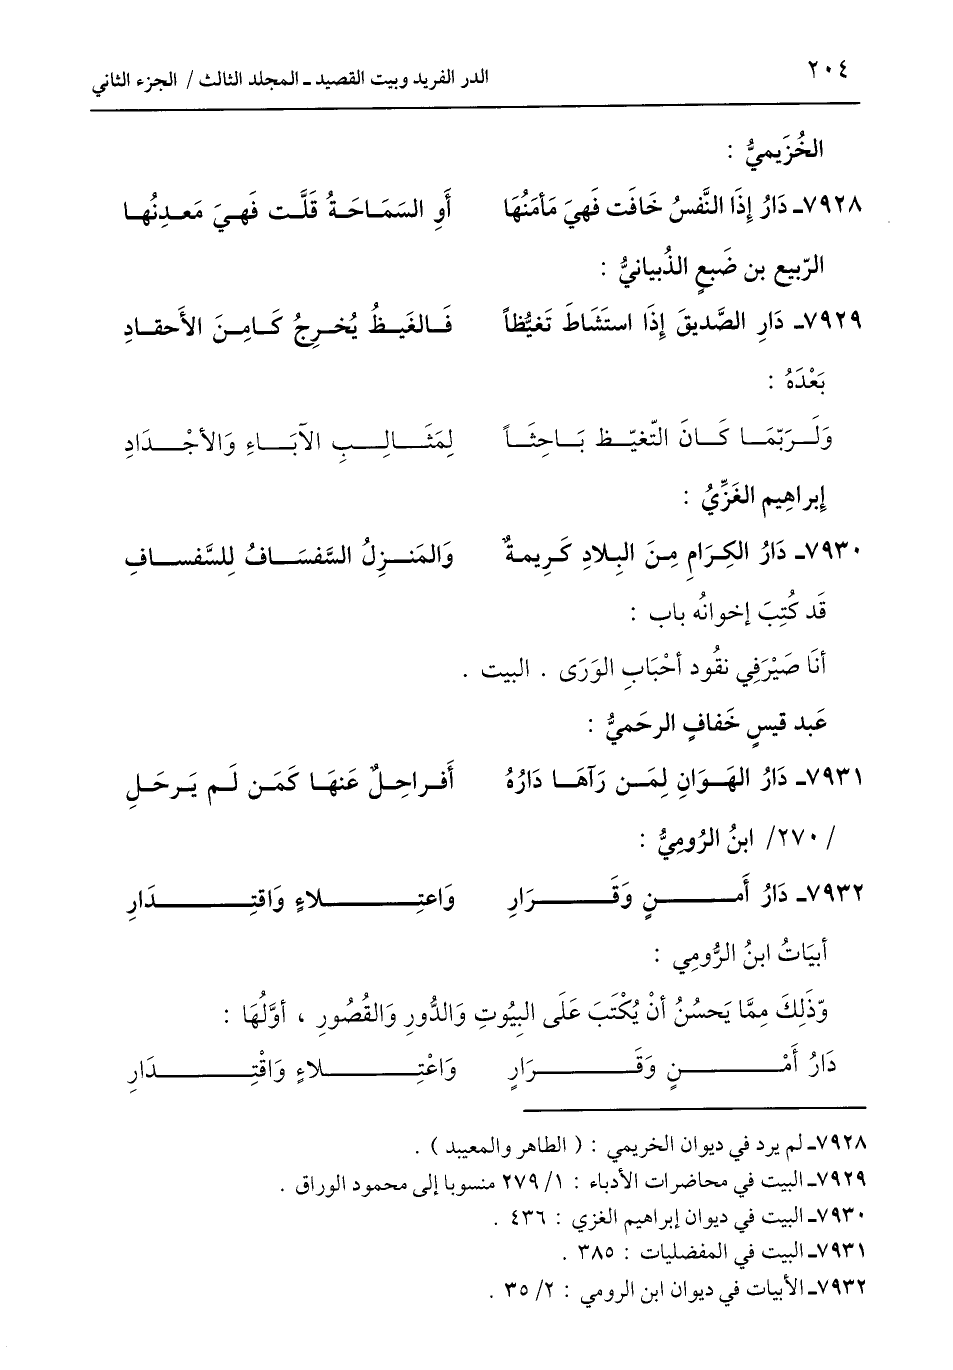 ٢٠٤ الدر الفريد وبيت القصيد ـ المجلد الثالث / الجزء الثاني
الخُزَيميُّ :
٧٩٢٨ـ دَارُ إذَا النَّفسُ خَافَت فَهيَ مَأمَنُهَا أَوِ السَمَاحَةُ قَلَّت فَهيَ مَعدِنُها
الرّبيع بن ضَبعٍ الذُبيانيُّ :
٧٩٢٩ـ دَارِ الصَّديقَ إِذَا استَشَاطَ تَغيُّظاً فَالغَيظُ يُخرِجُ كَامِنَ الأَحقادِ
بَعْدَهُ :
وَلَرَبّمَا كَانَ التّغيّظ بَاحِثَاً لِمَثَالِبِ الآبَاءِ وَالأجْدَادِ
إِبراهِيم الغَزِّيُ :
٧٩٣٠ـ دَارُ الكِرَامِ مِنَ البِلادِ كَرِيمةٌ وَالمَنزِلُ السَّفسَافُ لِلسَّفسافِ
قَد كُتِبَ إخوانُه باب :
أنَا صَيْرَفِي نقُود أحْبَابِ الوَرَى . البيت .
عَبد قيسٍ خَفافٍ الرحَميُّ :
٧٩٣١ـ دَارُ الهَوَانِ لِمَن رَآهَا دَارُهُ أَفراحِلٌ عَنهَا كَمَن لَم يَرحَلِ
/ ٢٧٠/ ابنُ الرُومِيُّ :
٧٩٣٢ـ دَارُ أَمنٍ وَقَرَارِ وَاعتِلاءٍ وَاقتِدَارِ
أبيَاتُ ابنُ الرُّومِي :
وّذَلِكَ مِمَّا يَحسُنُ أنْ يُكْتَبَ عَلَى البِيُوتِ وَالدُّورِ وَالقُصُورِ ، أوَّلُهَا :
دَارُ أَمْنٍ وَقَرَارٍ وَاعْتِلاءٍ وَاقْتِدَارِ
٧٩٢٨ـ لم يرد في ديوان الخريمي : ( الطاهر والمعيبد ) .
٧٩٢٩ـ البيت في محاضرات الأدباء : ١/ ٢٧٩ منسوبا إلى محمود الوراق .
٧٩٣٠ـ البيت في ديوان إبراهيم الغزي : ٤٣٦ .
٧٩٣١ـ البيت في المفضليات : ٣٨٥ .
٧٩٣٢ـ الأبيات في ديوان ابن الرومي : ٢/ ٣٥ .